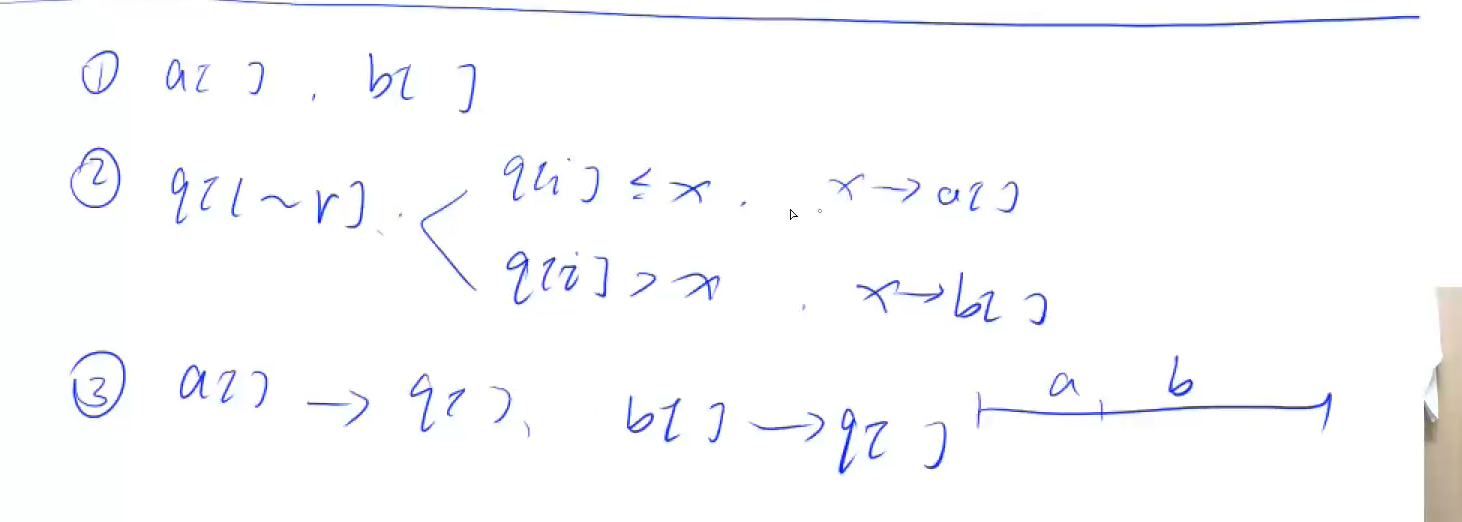 ① a[ ] , b[ ]
② q[l~r] . q[i] ≤ x . x→a[ ]
q[i] > x . x→b[ ]
③ a[ ] → q[ ]、 b[ ] → q[ ] a b